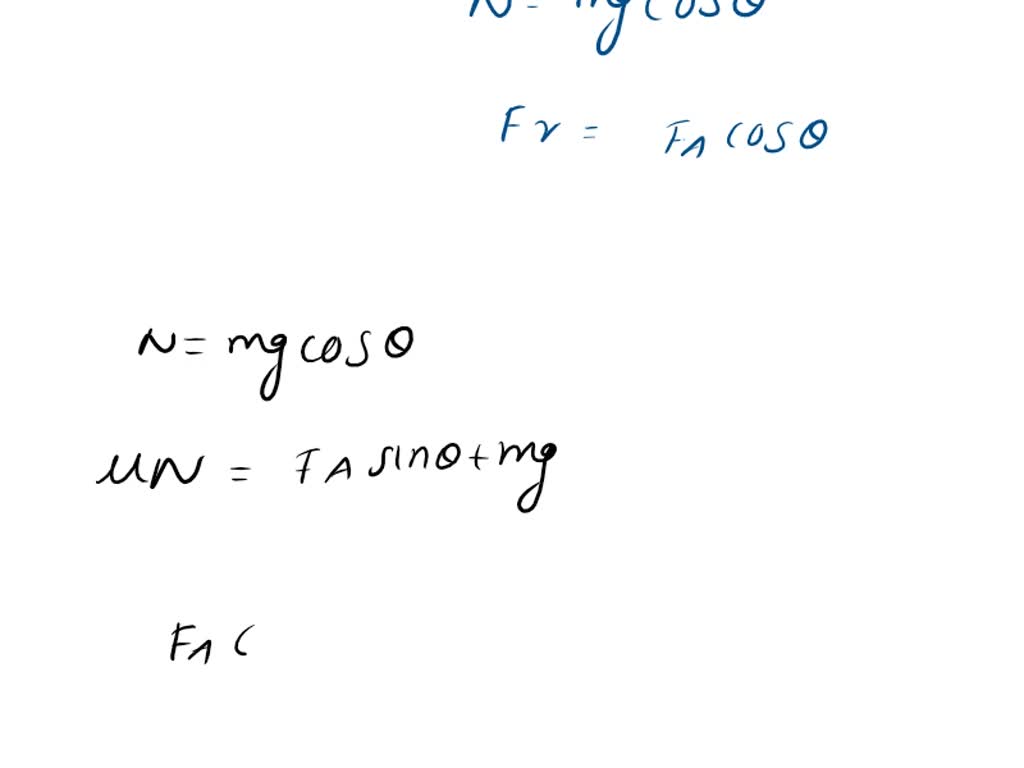 N = mg cosθ
Fr = FA cosθ
N = mg cosθ
μN = FA sinθ + mg
FA (